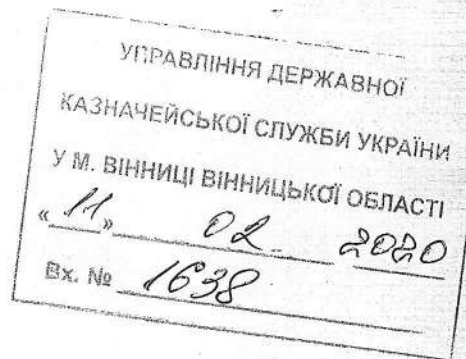 УПРАВЛІННЯ ДЕРЖАВНОЇ
КАЗНАЧЕЙСЬКОЇ СЛУЖБИ УКРАЇНИ
У М. ВІННИЦІ ВІННИЦЬКОЇ ОБЛАСТІ
« 11 » 02 2020
Вх. № 1638